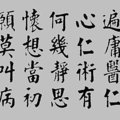 遍庸醫仁
心仁術有
何幾靜思
懷想當初
莫叫病